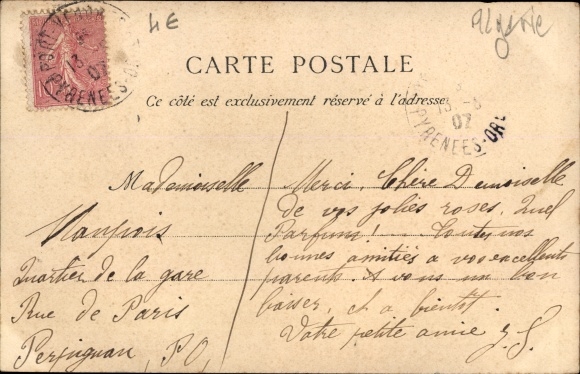 4E
Algérie
PORT VENDR
13
07
PYRENEES-OR
CARTE POSTALE
Ce côté est exclusivement réservé à l'adresse
13 -3
07
PYRENEES-ORI
Mademoiselle
Quartier de la gare
Rue de Paris
Perpignan, P.O,
Merci, Chère Demoiselle
de vos jolies roses, Quel
Parfum! Toutes nos
bonnes amitiés à vos excellents
parents. A vous un bon
baiser, et à bientôt.
Votre petite amie J.S.